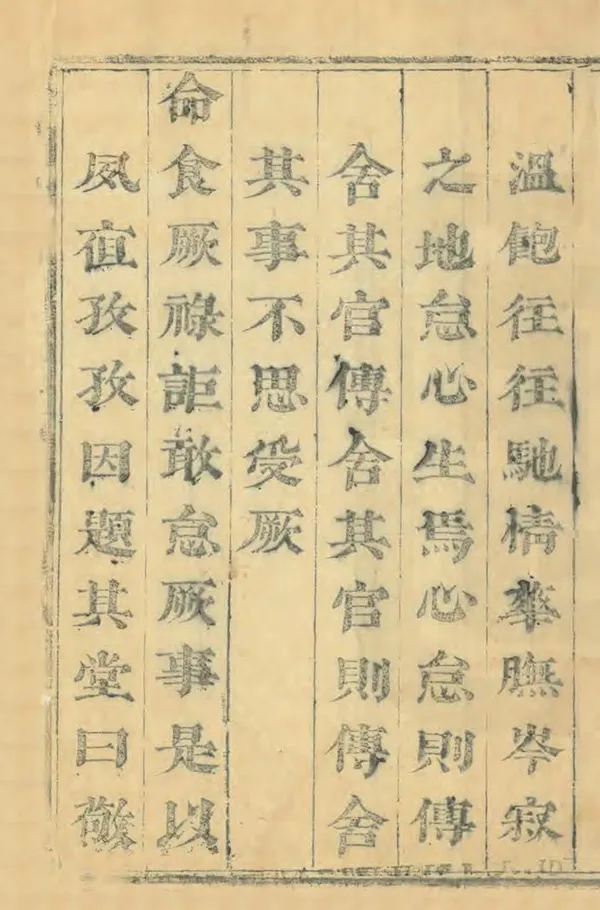 溫飽徃徃馳情華膴岑寂
之地怠心生焉心怠則傳
舍其官傳舍其官則傳舍
其事不思受厥
命食厥祿詎敢怠厥事是以
夙夜孜孜因題其堂曰敬